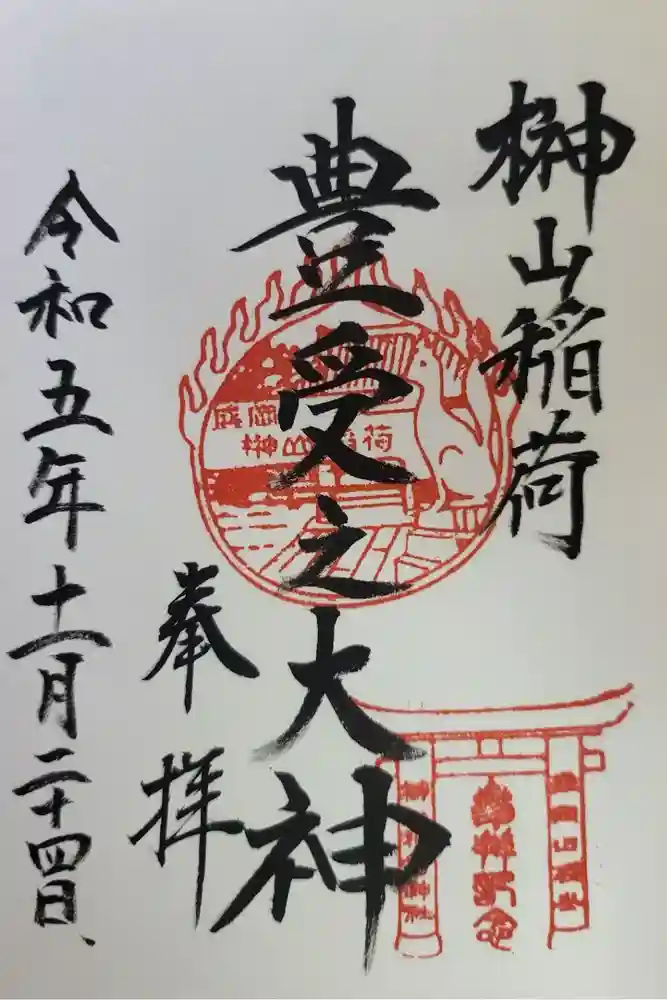 榊山稲荷
豊受之大神
奉拝
令和五年十一月二十四日、
盛岡
榊山稲荷